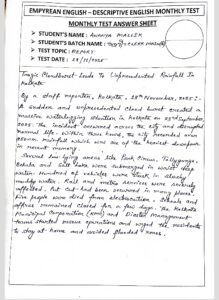 EMPYREAN ENGLISH – DESCRIPTIVE ENGLISH MONTHLY TEST
MONTHLY TEST ANSWER SHEET
➤ STUDENT'S NAME:
➤ STUDENT'S BATCH NAME:
➤ TEST TOPIC: REPORT
➤ TEST DATE: 28/11/2025
Tragic Cloudburst Leads to Unprecedented Rainfall In
Kolkata
By a staff reporter, Kolkata, 28th November, 2025:
A sudden and unprecedented cloud burst created a
massive waterlogging situation in Kolkata on 23rd September,
2025. The incident occurred across the city and disrupted
normal life. Within three hours, the city recorded
rainfall which was one of the heaviest downpours
in recent memory.
Several low lying areas like Park Circus, Tollygunge,
Behala and Salt Lake were submerged in waist deep
water. Hundred of vehicles were stuck in
muddy water. Rail and metro services were severely
affected. Power cut had been occurred in many places.
Five people were died from electrocution. Schools and
offices remained closed for a few days. The Kolkata
Municipal Corporation (KMC) and Disaster management
teams started rescue operations and urged the residents
to stay at home and avoided flooded zones.